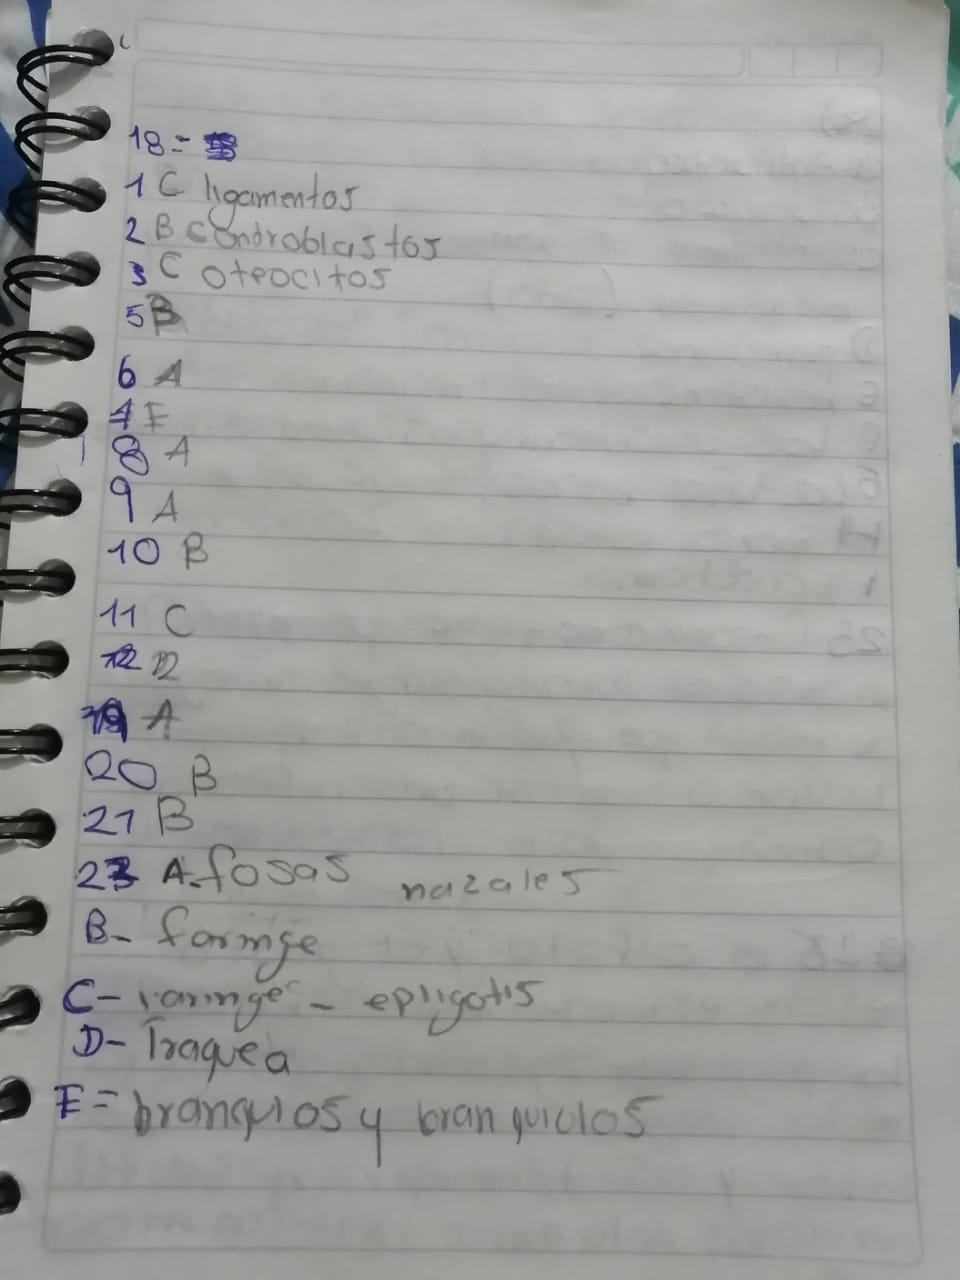 18=
1 C ligamentos
2 B condroblastos
3 C oteocitos
5 B
6 A
7 F
8 A
9 A
10 B
11 C
12 D
19 A
20 B
21 B
23 A. fosas nazales
B- faringe
C- laringe - epligotis
D- Traquea
E= branquios y branquiolos